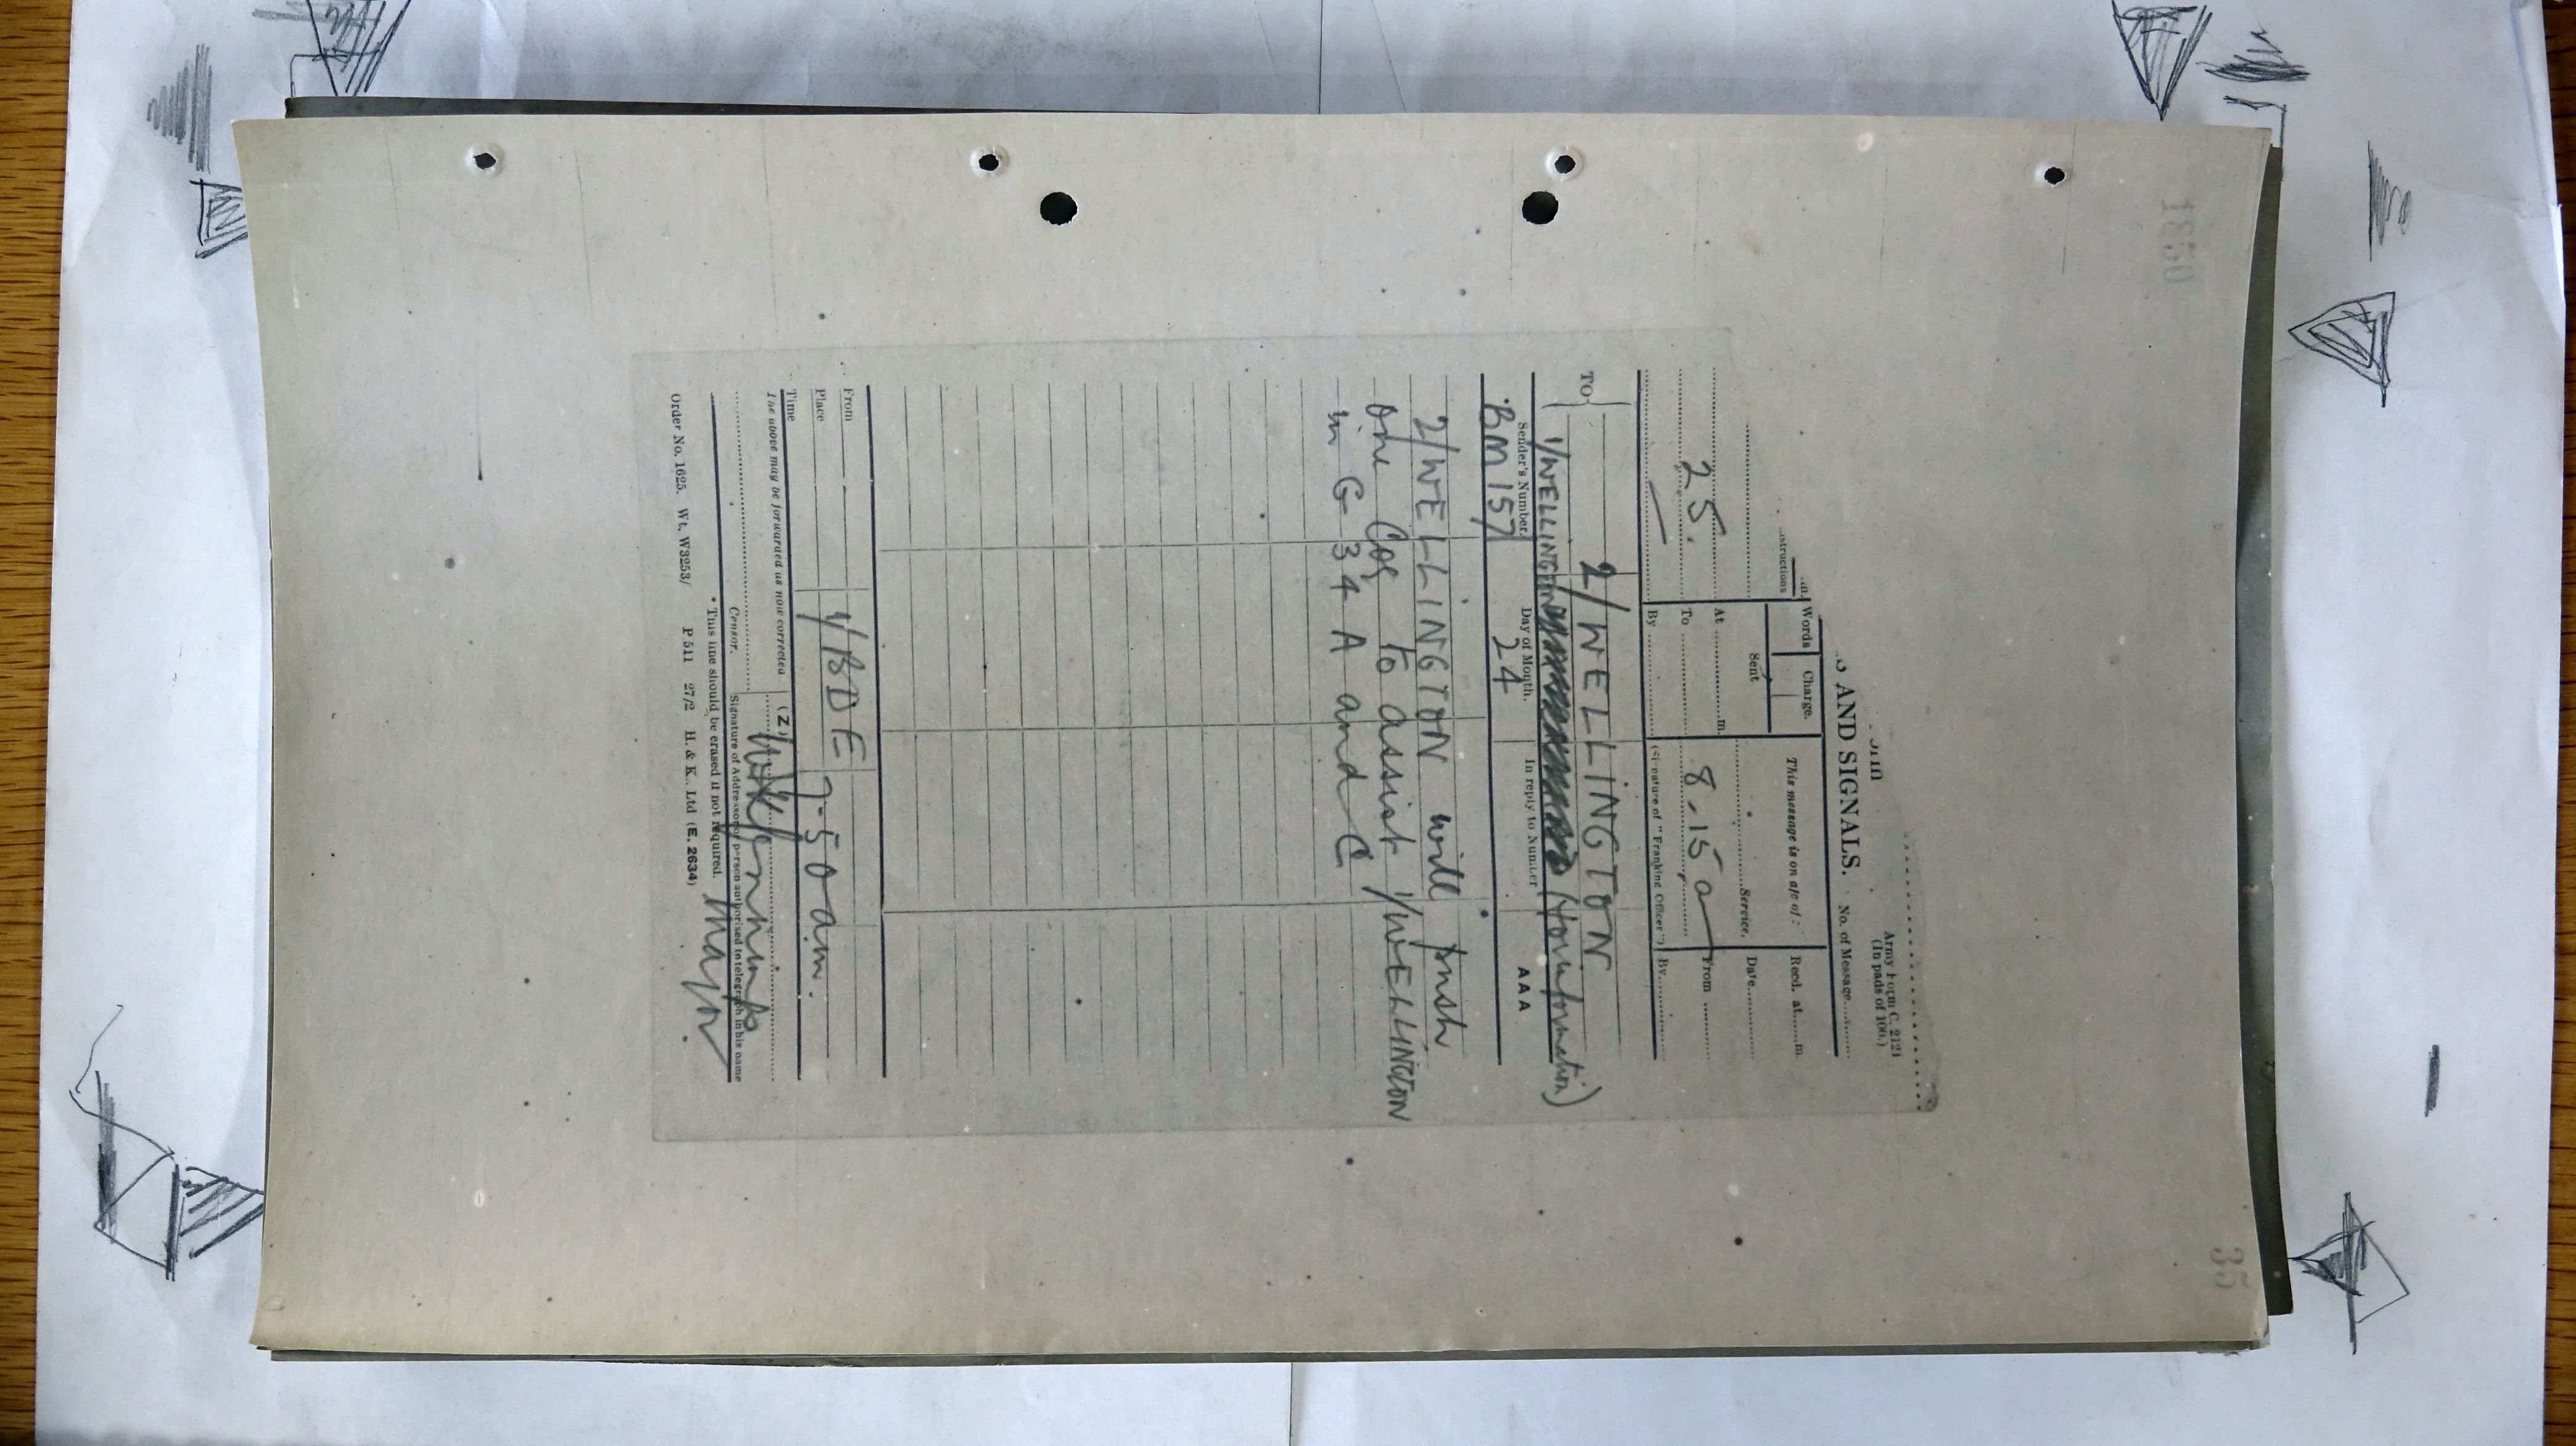 1850
35
Army Form C. 2121
(In pads of 100.)
AND SIGNALS. No. of Message
Words Charge.
This message is on a/c of :
Recd. at m.
Sent
Service.
Date
At m.
25.
To
8.15 a
From
By
(Signature of "Franking Officer")
By
TO
2/WELLINGTON
1/WELLINGTON (for information)
Sender's Number. Day of Month. In reply to Number
AAA
BM 157 24
2/WELLINGTON will push
one Coy to assist 1/WELLINGTON
in G 34 A and C
From
1/BDE
Place
Time
7-50 am.
The above may be forwarded as now corrected (Z)
Censor. Signature of Addressor or person authorised to telegraph in his name
Major
* This line should be erased if not required.
Order No. 1625. Wt. W3253/ P 511 27/2 H. & K., Ltd (E. 2634)